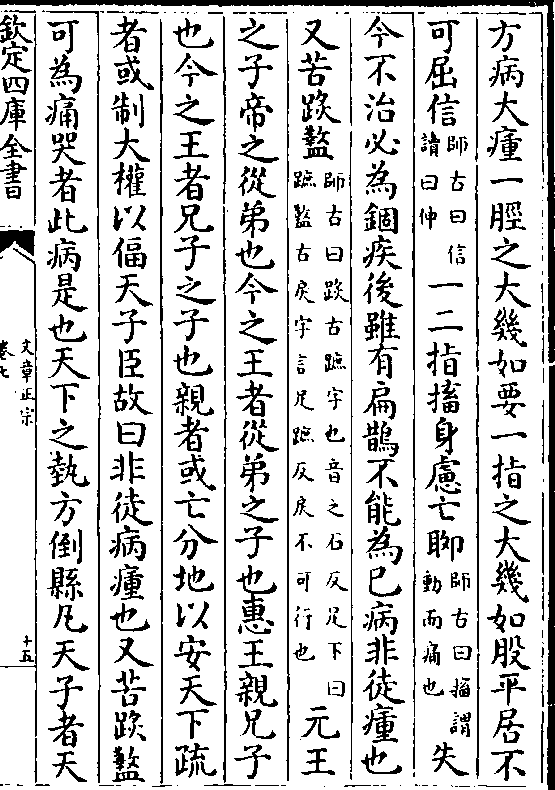 方病大瘇一脛之大幾如要一指之大幾如股平居不
可屈信師古曰信讀曰伸一二指搐身慮亡聊師古曰搐謂動而痛也失
今不治必為錮疾後雖有扁鵲不能為已病非徒瘇也
又苦𨂂盭師古曰𨂂古蹠字也音之石反足下曰蹠盭古戾字言足蹠反戾不可行也元王
之子帝之從弟也今之王者從弟之子也惠王親兄子
也今之王者兄子之子也親者或亡分地以安天下疏
者或制大權以偪天子臣故曰非徒病瘇也又苦𨂂盭
可為痛哭者此病是也天下之執方倒縣凡天子者天
欽定四庫全書
文章正宗
卷七
十五